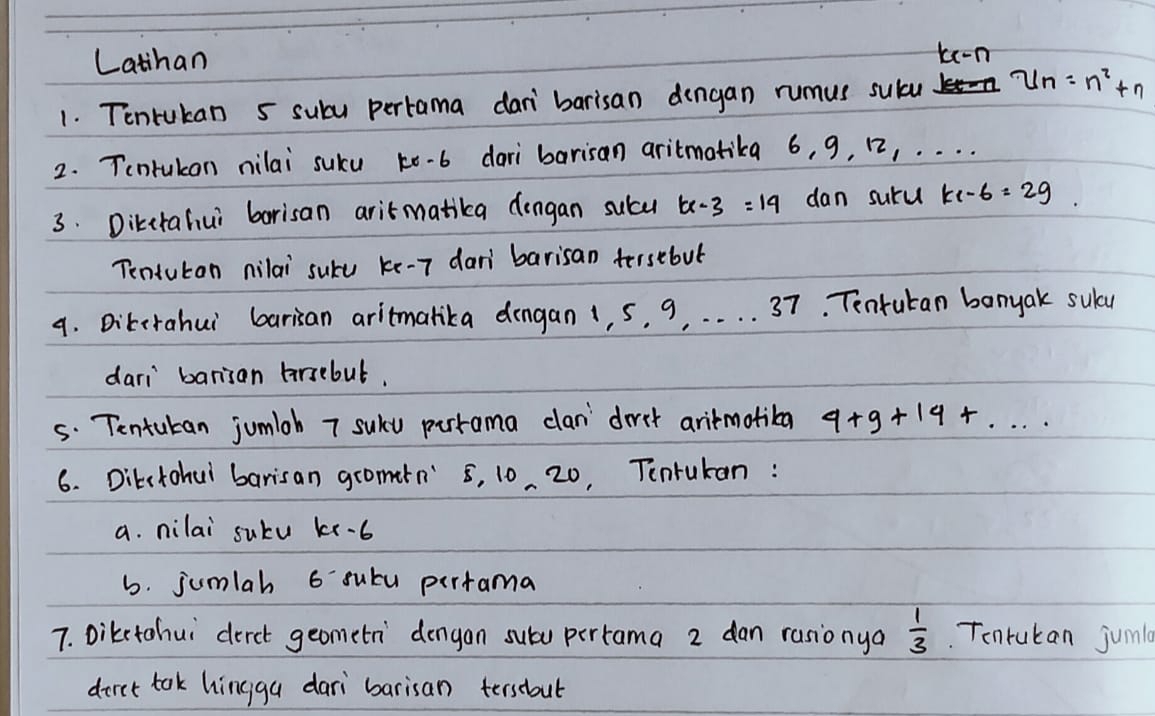 Latihan
ke-n
1. Tentukan 5 suku pertama dari barisan dengan rumus suku ke-n Un = n² + n
2. Tentukan nilai suku ke-6 dari barisan aritmatika 6, 9, 12, ....
3. Diketahui barisan aritmatika dengan suku ke-3 = 14 dan suku ke-6 = 29.
Tentukan nilai suku ke-7 dari barisan tersebut
4. Diketahui barisan aritmatika dengan 1, 5, 9, .... 37. Tentukan banyak suku
dari barisan tersebut.
5. Tentukan jumlah 7 suku pertama dari deret aritmatika 4 + 9 + 14 + ....
6. Diketahui barisan geometri 5, 10, 20, Tentukan :
a. nilai suku ke-6
b. jumlah 6 suku pertama
7. Diketahui deret geometri dengan suku pertama 2 dan rasionya 1/3. Tentukan jumla
deret tak hingga dari barisan tersebut